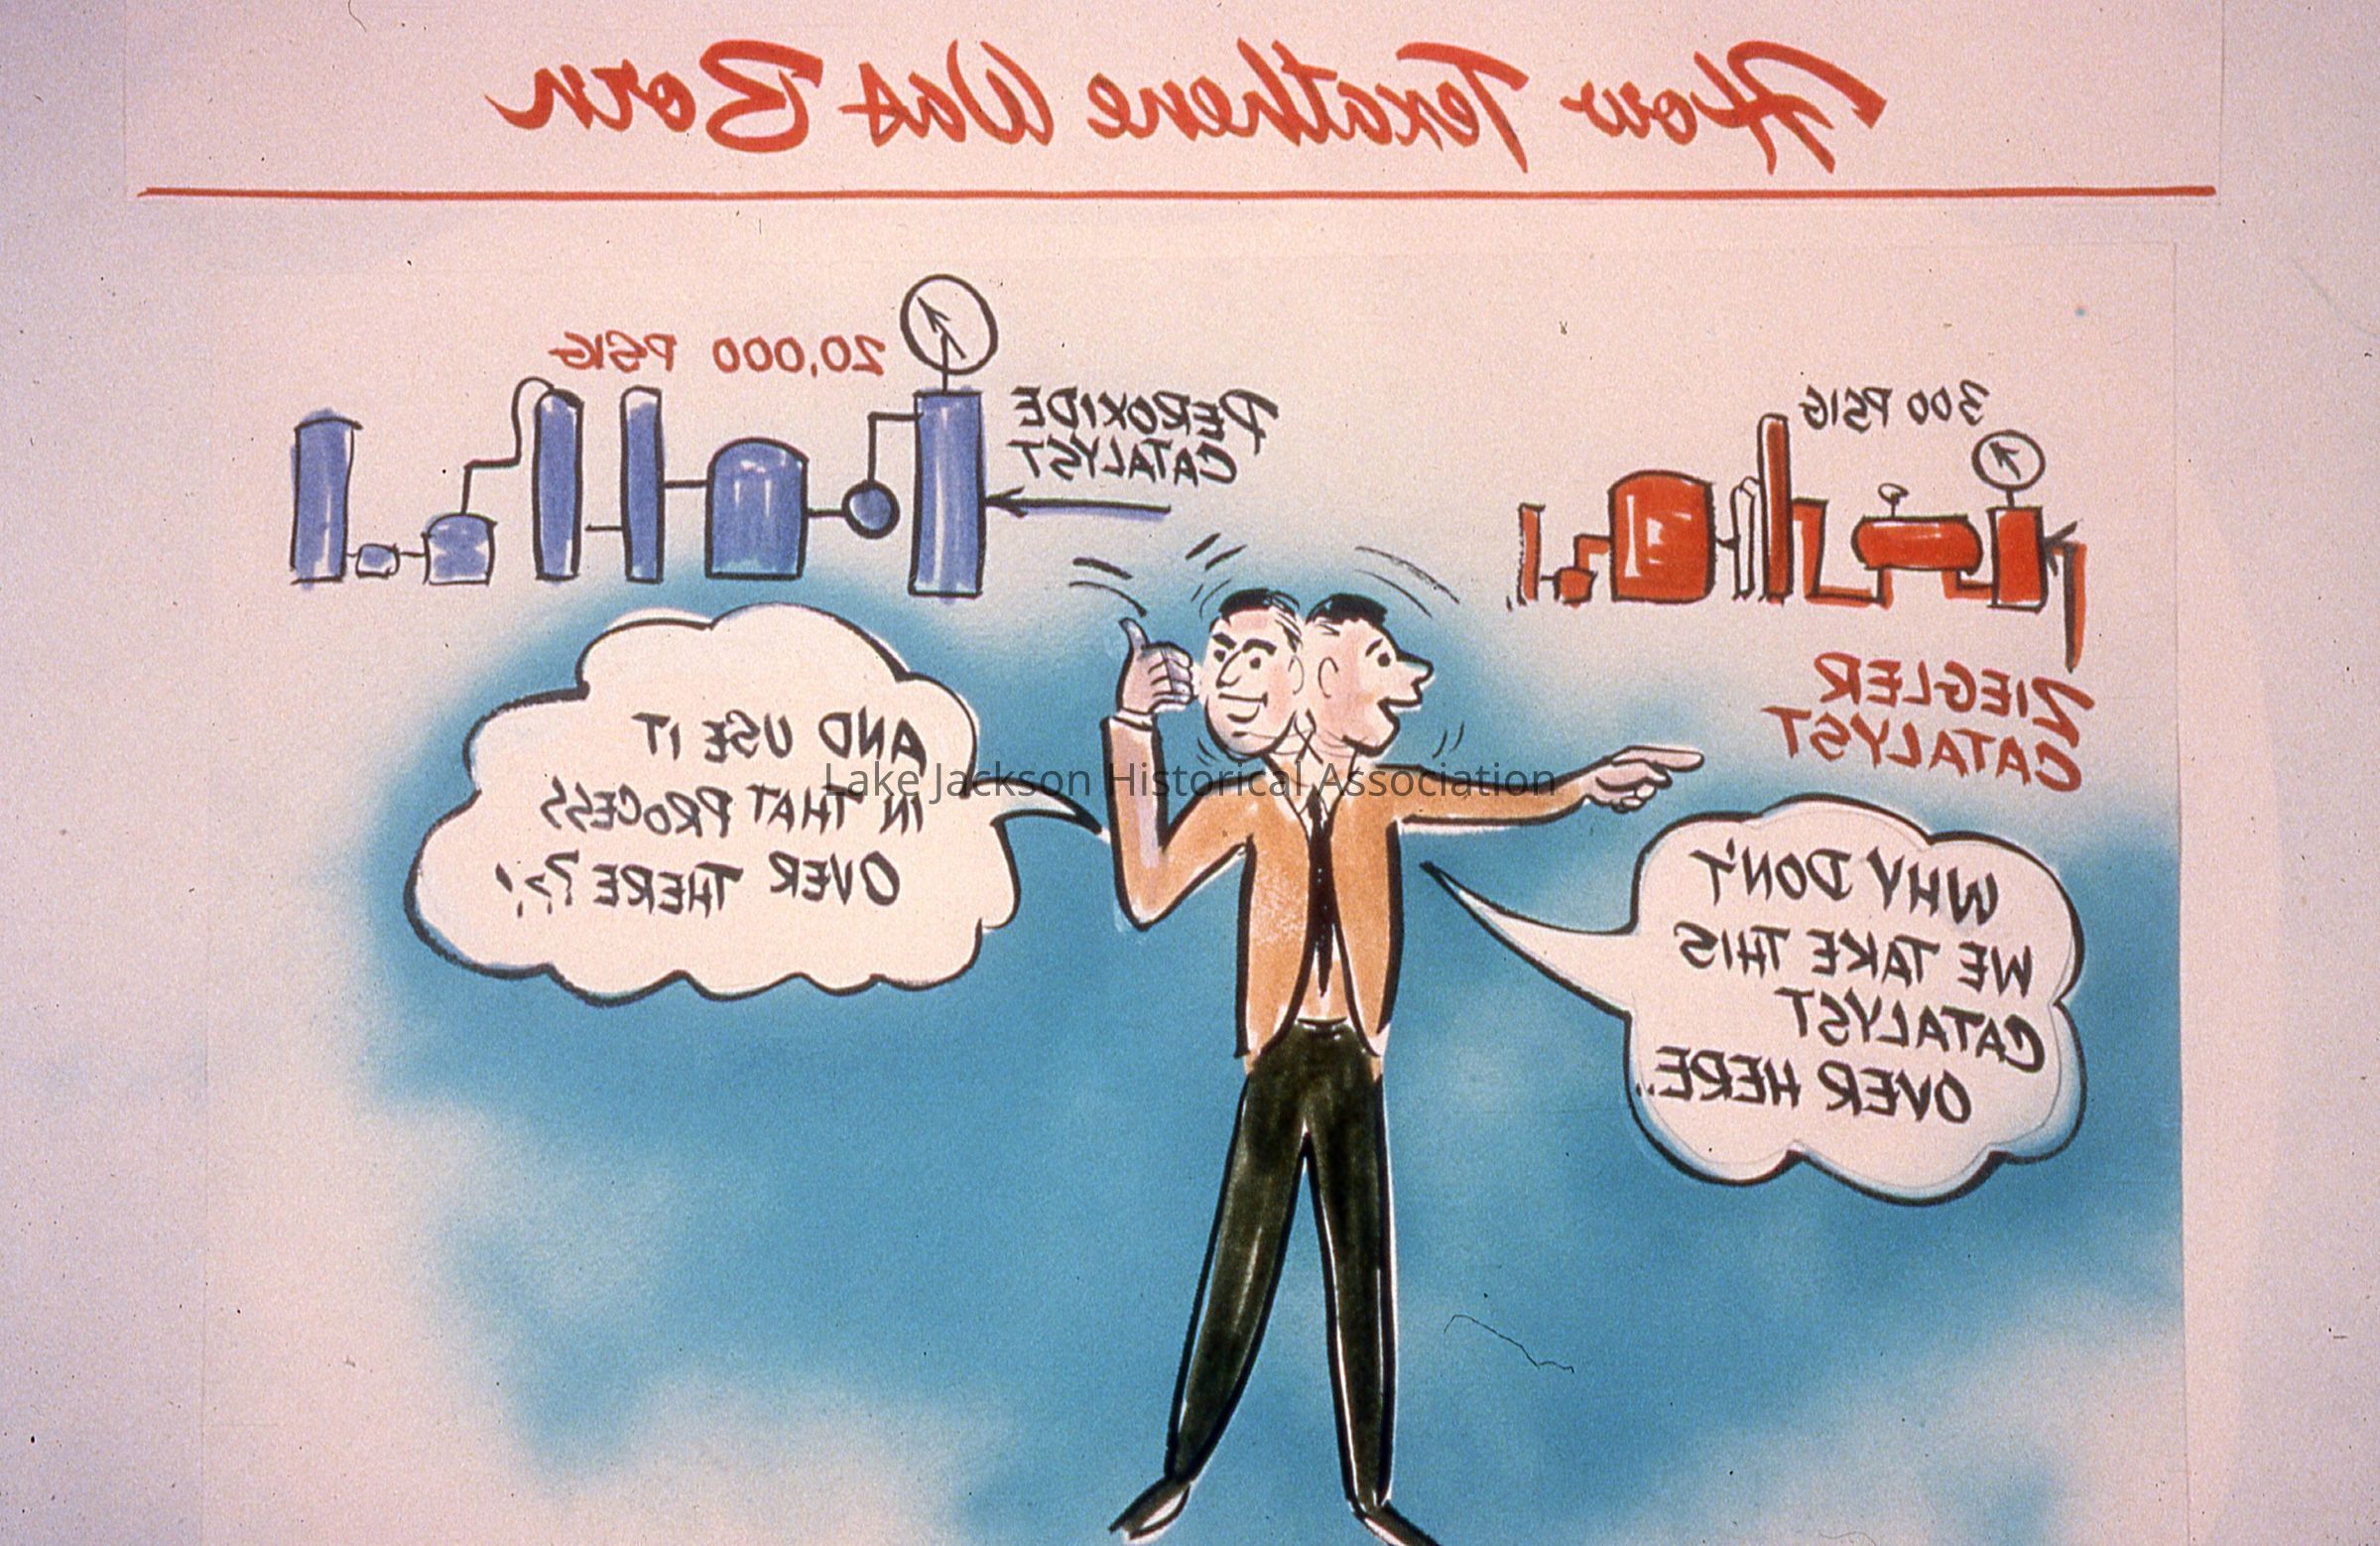 How Texathene Was Born
300 PSIG
ZIEGLER
CATALYST
20,000 PSIG
PEROXIDE
CATALYST
WHY DON'T
WE TAKE THIS
CATALYST
OVER HERE..
AND USE IT
IN THAT PROCESS
OVER THERE?!
Lake Jackson Historical Association